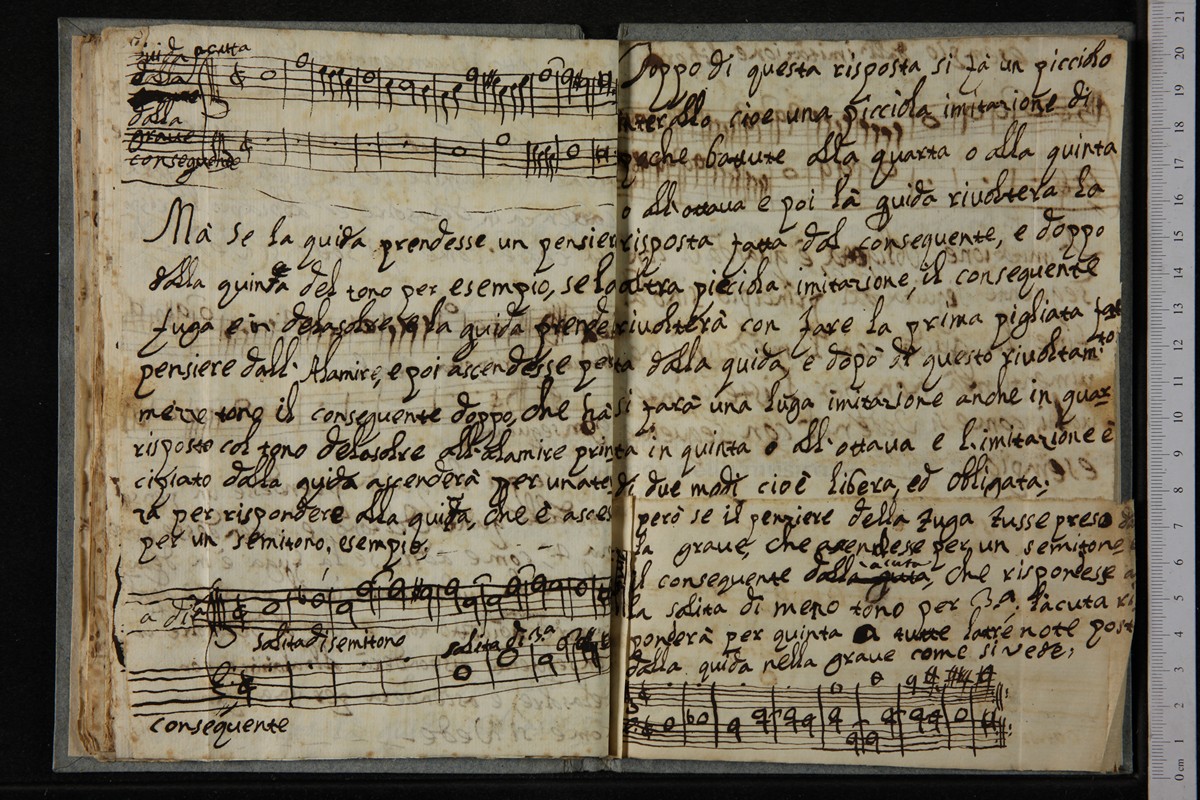 acuta
dalla
dalla
grave
conseguente
Mà se la guida prendesse un pensier
dalla quinta del tono per esempio, se la
fuga e in delasolre, e la guida prende
pensiere dall'Alamire, e poi ascendesse per
mezzo tono il conseguente doppo, che hà
risposto col tono delasolre all'alamire prin
cipiato dalla guida ascenderà per una ter
za per rispondere alla guida, che è asces
per un semitono, esempio;
Salita di semitono
salita di 3.a
conseguente
Doppo di questa risposta si fà un picciolo
interallo cioe una picciola imitazione di
poche battute alla quarta o alla quinta
o all'ottava e poi la guida rivolterà la
risposta fatta dal conseguente, e doppo
altra picciola imitazione, il conseguente
rivolterà con fare la prima pigliata fat
ta dalla guida, e dopò di questo rivoltam.to
si farà una luga imitazione anche in quar
ta in quinta o all'ottava e l'imitazione è
di due modi cioè libera, ed obligata;
però se il penziere della fuga fusse preso
la grave, che ascendese per un semitone
il conseguente dalla acuta, che rispondese
la salita di mezo tono per 3.a l'acuta ri
ponderà per quinta a tutte l'altre note post
dalla guida nella grave come si vede;